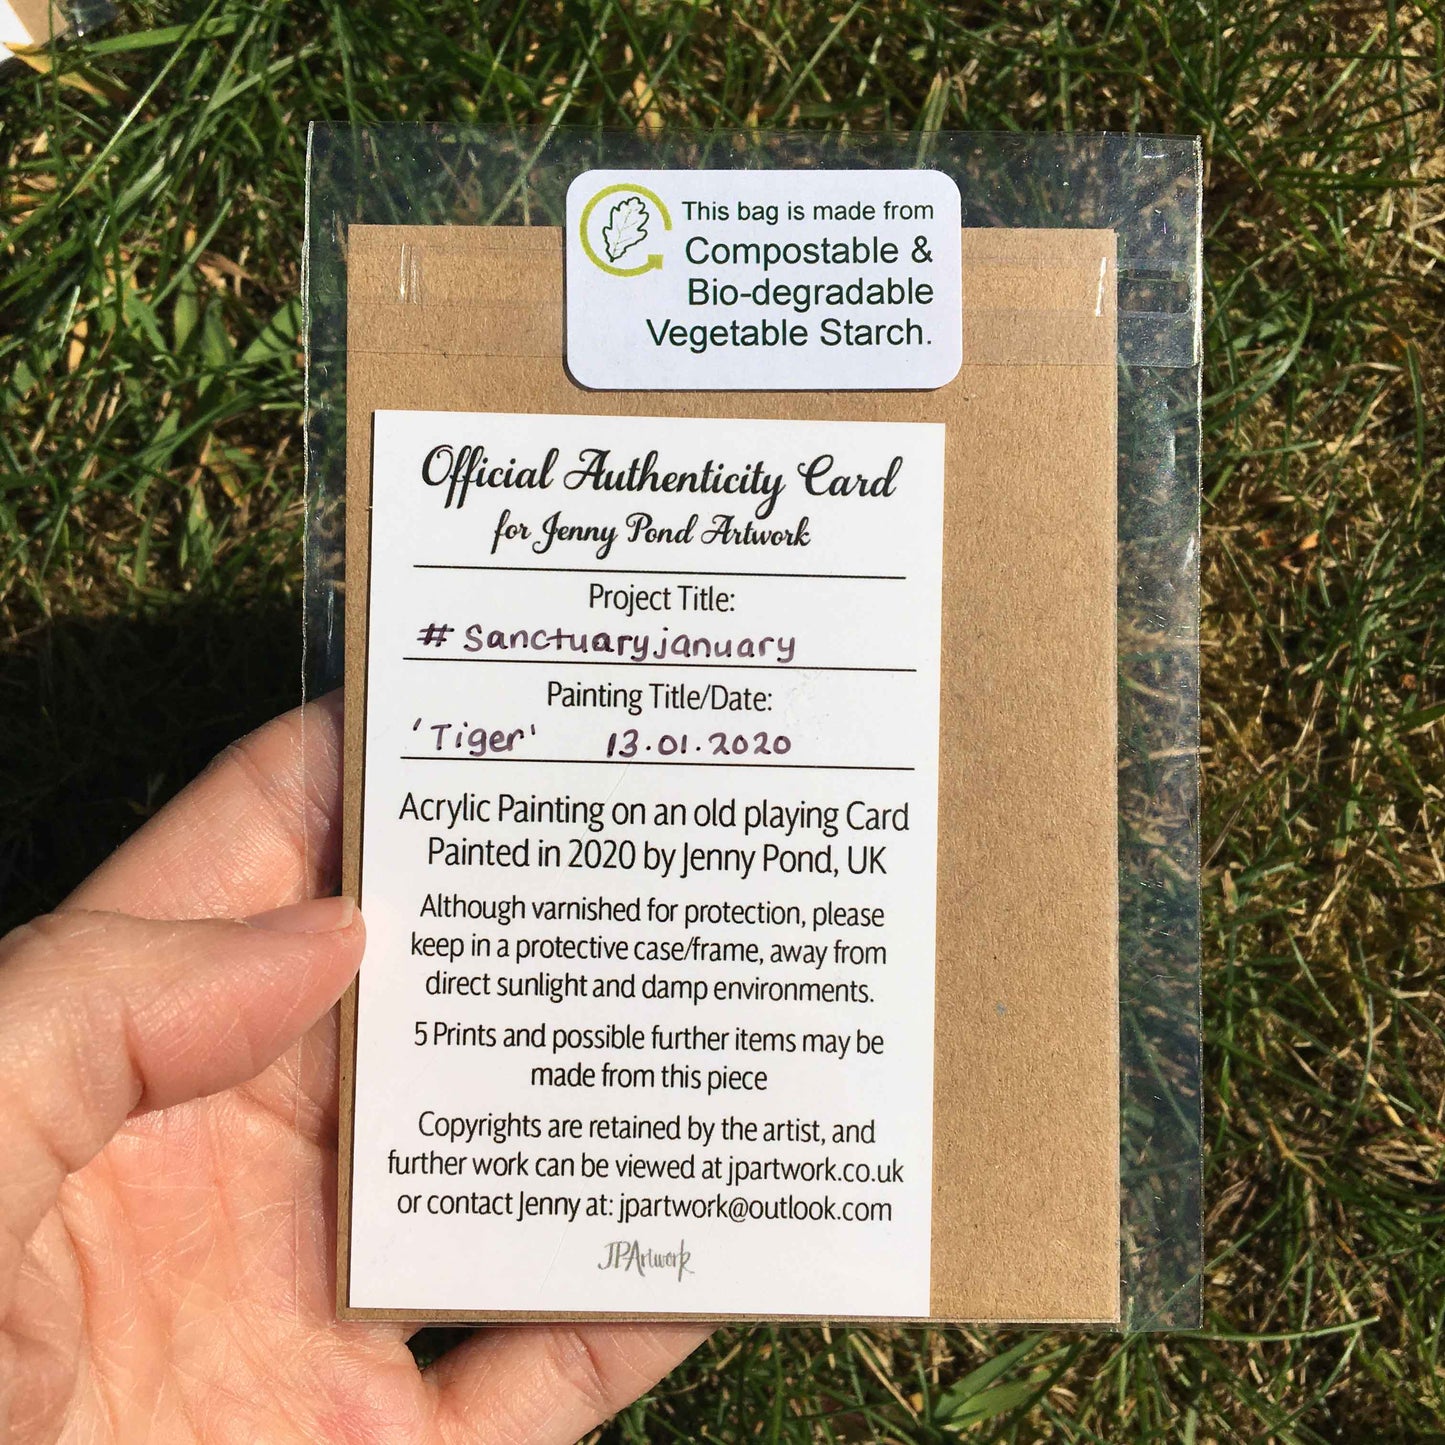 This bag is made from
Compostable &
Bio-degradable
Vegetable Starch.
Official Authenticity Card
for Jenny Pond Artwork
Project Title:
# Sanctuaryjanuary
Painting Title/Date:
'Tiger' 13.01.2020
Acrylic Painting on an old playing Card
Painted in 2020 by Jenny Pond, UK
Although varnished for protection, please
keep in a protective case/frame, away from
direct sunlight and damp environments.
5 Prints and possible further items may be
made from this piece
Copyrights are retained by the artist, and
further work can be viewed at jpartwork.co.uk
or contact Jenny at: jpartwork@outlook.com
JPArtwork